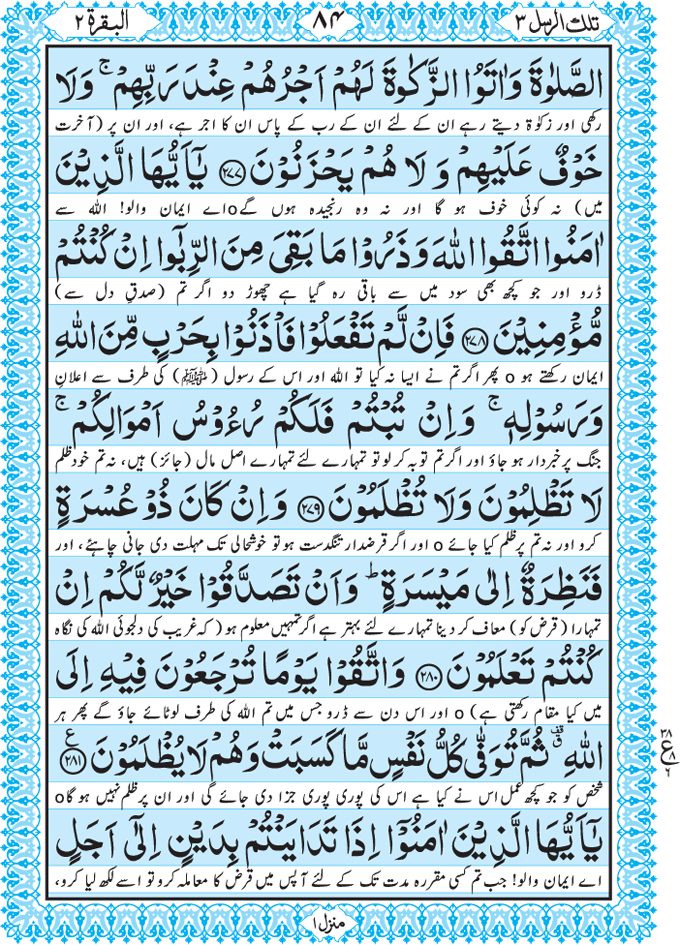 تلك الرسل ۳
۸۴
البقرة ۲
الصَّلٰوةَ وَاٰتَوُا الزَّكٰوةَ لَهُمْ اَجْرُهُمْ عِنْدَ رَبِّهِمْ ۚ وَلَا
رکھی اور زکوٰۃ دیتے رہے ان کے لئے ان کے رب کے پاس ان کا اجر ہے، اور ان پر (آخرت
خَوْفٌ عَلَيْهِمْ وَلَا هُمْ يَحْزَنُوْنَ ﴿۲۷۷﴾ يٰۤاَيُّهَا الَّذِيْنَ
میں) نہ کوئی خوف ہو گا اور نہ وہ رنجیدہ ہوں گے o اے ایمان والو! اللہ سے
اٰمَنُوا اتَّقُوا اللّٰهَ وَذَرُوْا مَا بَقِىَ مِنَ الرِّبٰۤوا اِنْ كُنْتُمْ
ڈرو اور جو کچھ بھی سود میں سے باقی رہ گیا ہے چھوڑ دو اگر تم (صدقِ دل سے)
مُّؤْمِنِيْنَ ﴿۲۷۸﴾ فَاِنْ لَّمْ تَفْعَلُوْا فَاْذَنُوْا بِحَرْبٍ مِّنَ اللّٰهِ
ایمان رکھتے ہو o پھر اگر تم نے ایسا نہ کیا تو اللہ اور اس کے رسول (ﷺ) کی طرف سے اعلانِ
وَرَسُوْلِهٖ ۚ وَاِنْ تُبْتُمْ فَلَكُمْ رُءُوْسُ اَمْوَالِكُمْ ۚ
جنگ پر خبردار ہو جاؤ اور اگر تم توبہ کر لو تو تمہارے لئے تمہارے اصل مال (جائز) ہیں، نہ تم خود ظلم
لَا تَظْلِمُوْنَ وَلَا تُظْلَمُوْنَ ﴿۲۷۹﴾ وَاِنْ كَانَ ذُوْ عُسْرَةٍ
کرو اور نہ تم پر ظلم کیا جائے o اور اگر قرضدار تنگدست ہو تو خوشحالی تک مہلت دی جانی چاہئے، اور
فَنَظِرَةٌ اِلٰى مَيْسَرَةٍ ؕ وَاَنْ تَصَدَّقُوْا خَيْرٌ لَّكُمْ اِنْ
تمہارا (قرض کو) معاف کر دینا تمہارے لئے بہتر ہے اگر تمہیں معلوم ہو (کہ غریب کی دلجوئی اللہ کی نگاہ
كُنْتُمْ تَعْلَمُوْنَ ﴿۲۸۰﴾ وَاتَّقُوْا يَوْمًا تُرْجَعُوْنَ فِيْهِ اِلَى
میں کیا مقام رکھتی ہے) o اور اس دن سے ڈرو جس میں تم اللہ کی طرف لوٹائے جاؤ گے پھر ہر
اللّٰهِ ۗ ثُمَّ تُوَفّٰى كُلُّ نَفْسٍ مَّا كَسَبَتْ وَهُمْ لَا يُظْلَمُوْنَ ﴿۲۸۱﴾ ع
شخص کو جو کچھ عمل اس نے کیا ہے اس کی پوری پوری جزا دی جائے گی اور ان پر ظلم نہیں ہو گا o
يٰۤاَيُّهَا الَّذِيْنَ اٰمَنُوْۤا اِذَا تَدَايَنْتُمْ بِدَيْنٍ اِلٰۤى اَجَلٍ
اے ایمان والو! جب تم کسی مقررہ مدت تک کے لئے آپس میں قرض کا معاملہ کرو تو اسے لکھ لیا کرو،
۳۸
ع ۸
۶
منزل ۱